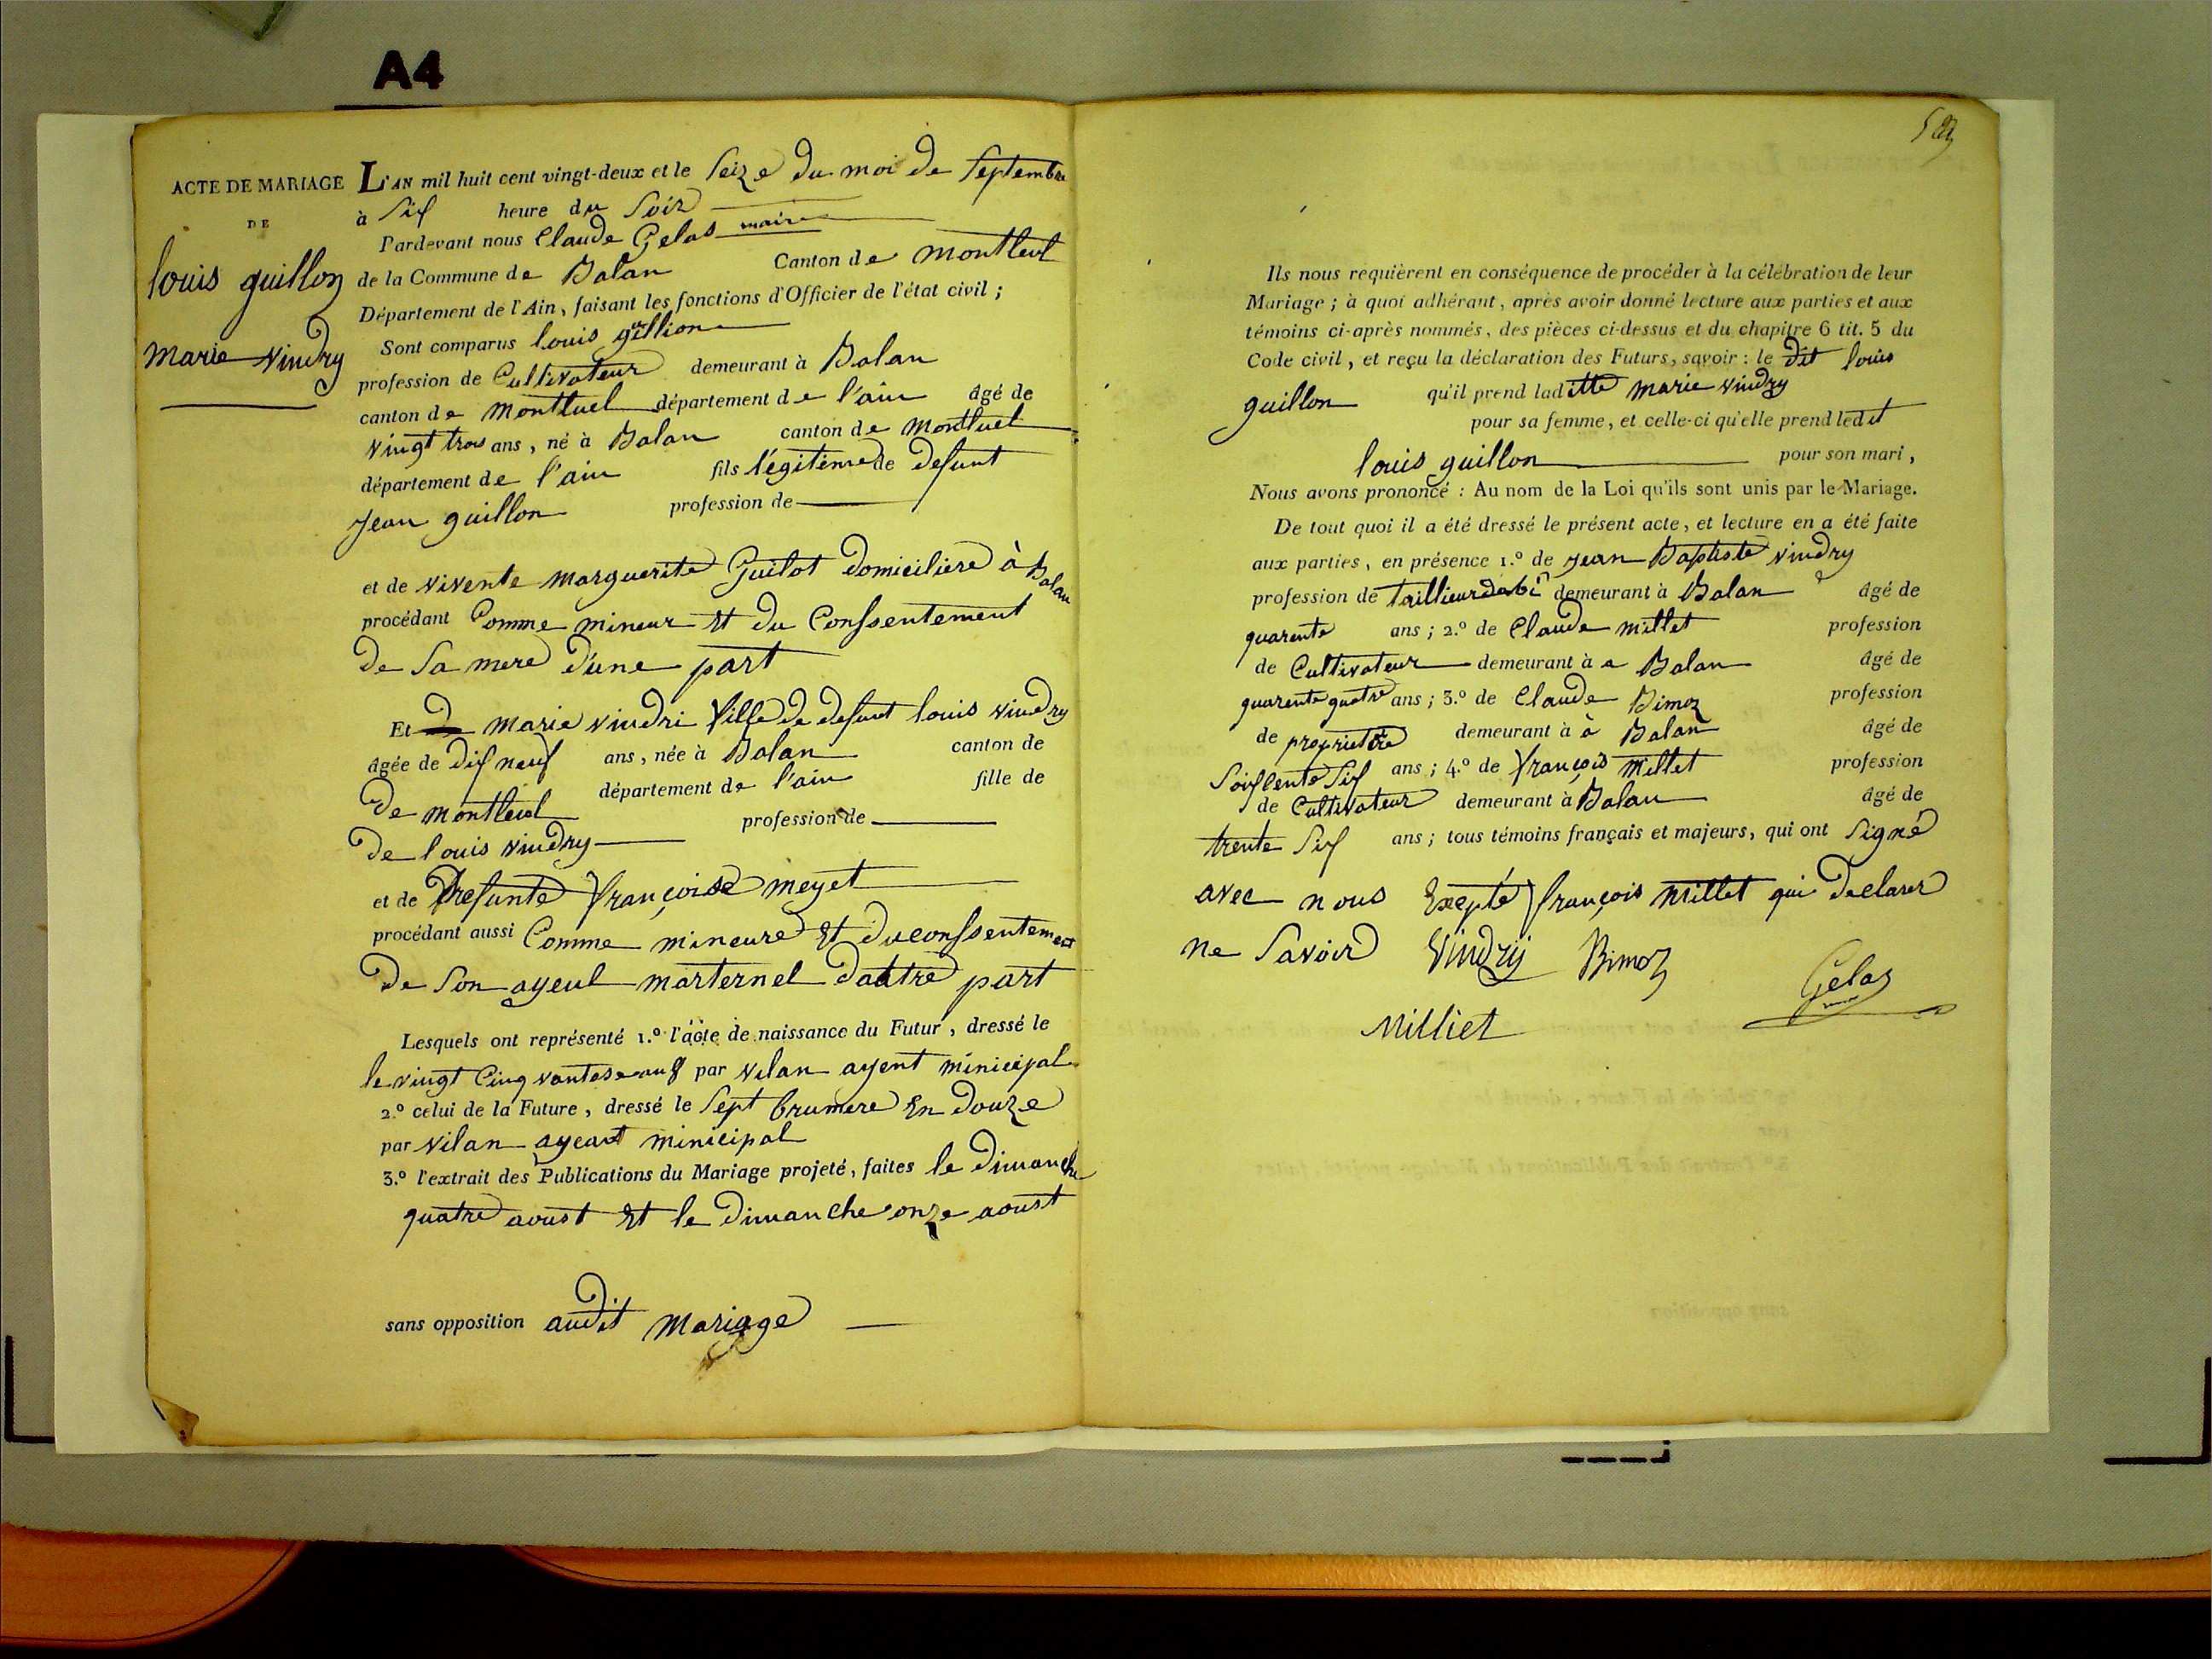 A4
ACTE DE MARIAGE
DE
louis guillon
marie vindry
L'AN mil huit cent vingt-deux et le seize du moi de septembre
à six heure du soir
Pardevant nous Claude Gelas maire
de la Commune de Balan Canton de montluel
Département de l'Ain, faisant les fonctions d'Officier de l'état civil;
Sont comparus louis guillion
profession de Cultivateur demeurant à Balan
canton de montluel département de l'ain âgé de
vingt trois ans, né à Balan canton de montluel
département de l'ain fils légitime de defunt
jean guillon profession de
et de vivente marguerite Guilot domiciliere à Balan
procédant Comme mineur et du Conssentement
De sa mere d'une part
Et marie vindri fille de defunt louis vindry
âgée de dix neuf ans, née à Balan canton de
De montluel département de l'ain fille de
De louis vindry profession de
et de françoise meyet
procédant aussi Comme mineure et du conssentement
De son ayeul marternel dautre part
Lesquels ont représenté 1.º l'acte de naissance du Futur, dressé le
le vingt Cinq vantose an 8 par vilan agent minicipal
2.º celui de la Future, dressé le sept brumere en douze
par vilan ageant minicipal
3.º l'extrait des Publications du Mariage projeté, faites le dimanche
quatre aoust et le dimanche onze aoust
sans opposition audit mariage
Ils nous requièrent en conséquence de procéder à la célébration de leur
Mariage; à quoi adhérant, après avoir donné lecture aux parties et aux
témoins ci-après nommés, des pièces ci-dessus et du chapitre 6 tit. 5 du
Code civil, et reçu la déclaration des Futurs, savoir: le dit louis
guillon qu'il prend laditte marie vindry
pour sa femme, et celle-ci qu'elle prend ledit
louis guillon pour son mari,
Nous avons prononcé: Au nom de la Loi qu'ils sont unis par le Mariage.
De tout quoi il a été dressé le présent acte, et lecture en a été faite
aux parties, en présence 1.º de jean Baptiste vindry
profession de taillieur dabi demeurant à Balan âgé de
quarente ans; 2.º de Claude millet profession
de Cultivateur demeurant à a Balan âgé de
quarente quatre ans; 3.º de Claude Bimoz profession
de proprietere demeurant à à Balan âgé de
soissente six ans; 4.º de françois millet profession
de Cultivateur demeurant à Balan âgé de
trente six ans; tous témoins français et majeurs, qui ont signé
avec nous Exepté françois millet qui declarer
ne savoir Vindry Bimoz Gelas
Milliet